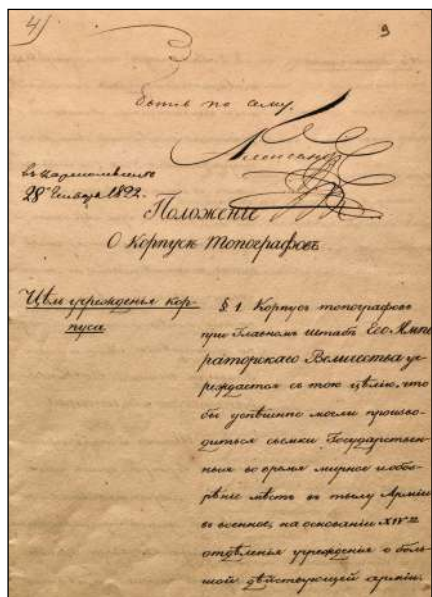 4)
9
быть по сему.
Александръ
въ Царскомъ селѣ
28 Генваря 1822.
Положеніе
О Корпусѣ Топографовъ
Цѣль учрежденья кор-
пуса
§ 1. Корпусъ топографовъ
при Главномъ штабѣ Его Импе
раторскаго Величества уч-
реждается съ тою цѣлію, что
бы успѣшнѣе могли произво-
диться съемки Государствен-
ныя во время мирное и обоз-
рѣніе мѣстъ въ тылу Арміи
въ военное, на основаніи
отдѣленья учрежденія о боль-
шой дѣйствующей арміи.